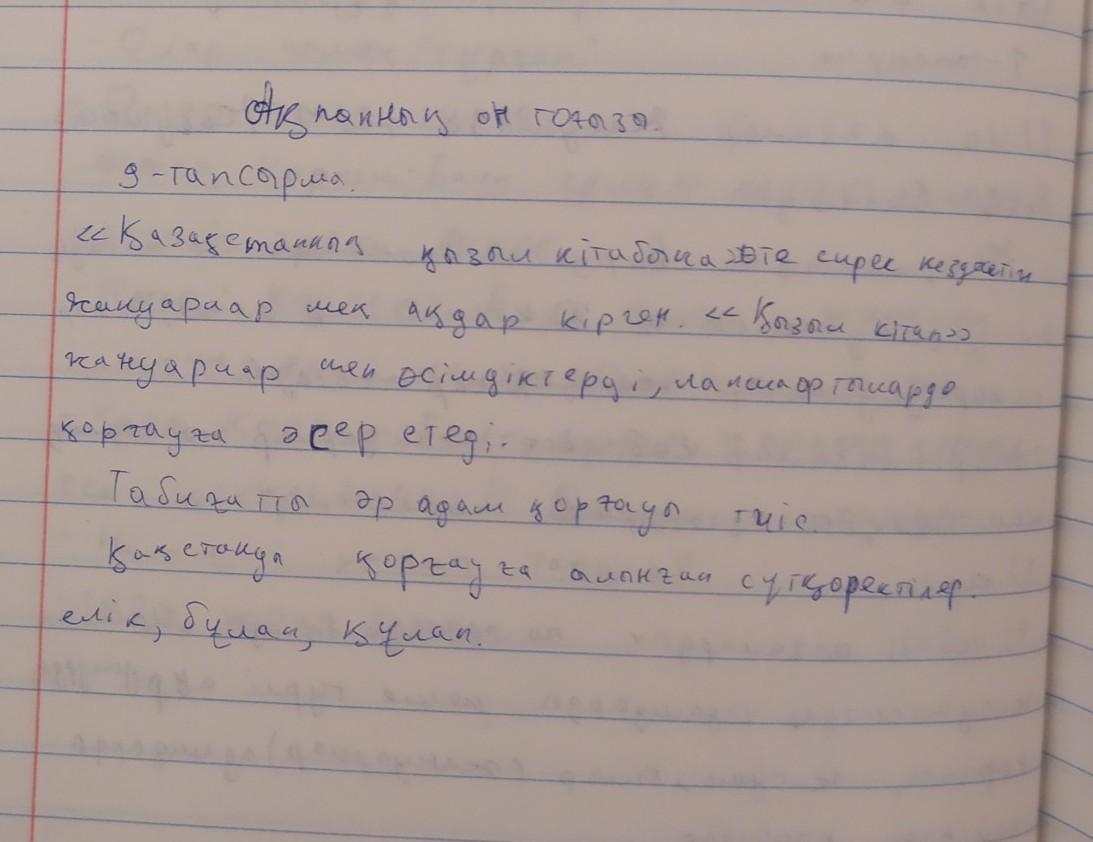 Ақпанның он тоғызы.
9-тапсырма.
«Қазақстанның қызыл кітабына» Өте сирек кездесетін
жануарлар мен аңдар кірген. «Қызыл кітап»
жануарлар мен өсімдіктерді, ланшафтыларды
қорғауға әсер етеді.
Табиғатты әр адам қорғауы тиіс.
Қақстанда қорғауға алынған сүтқоректілер.
елік, бұлан, құлан.